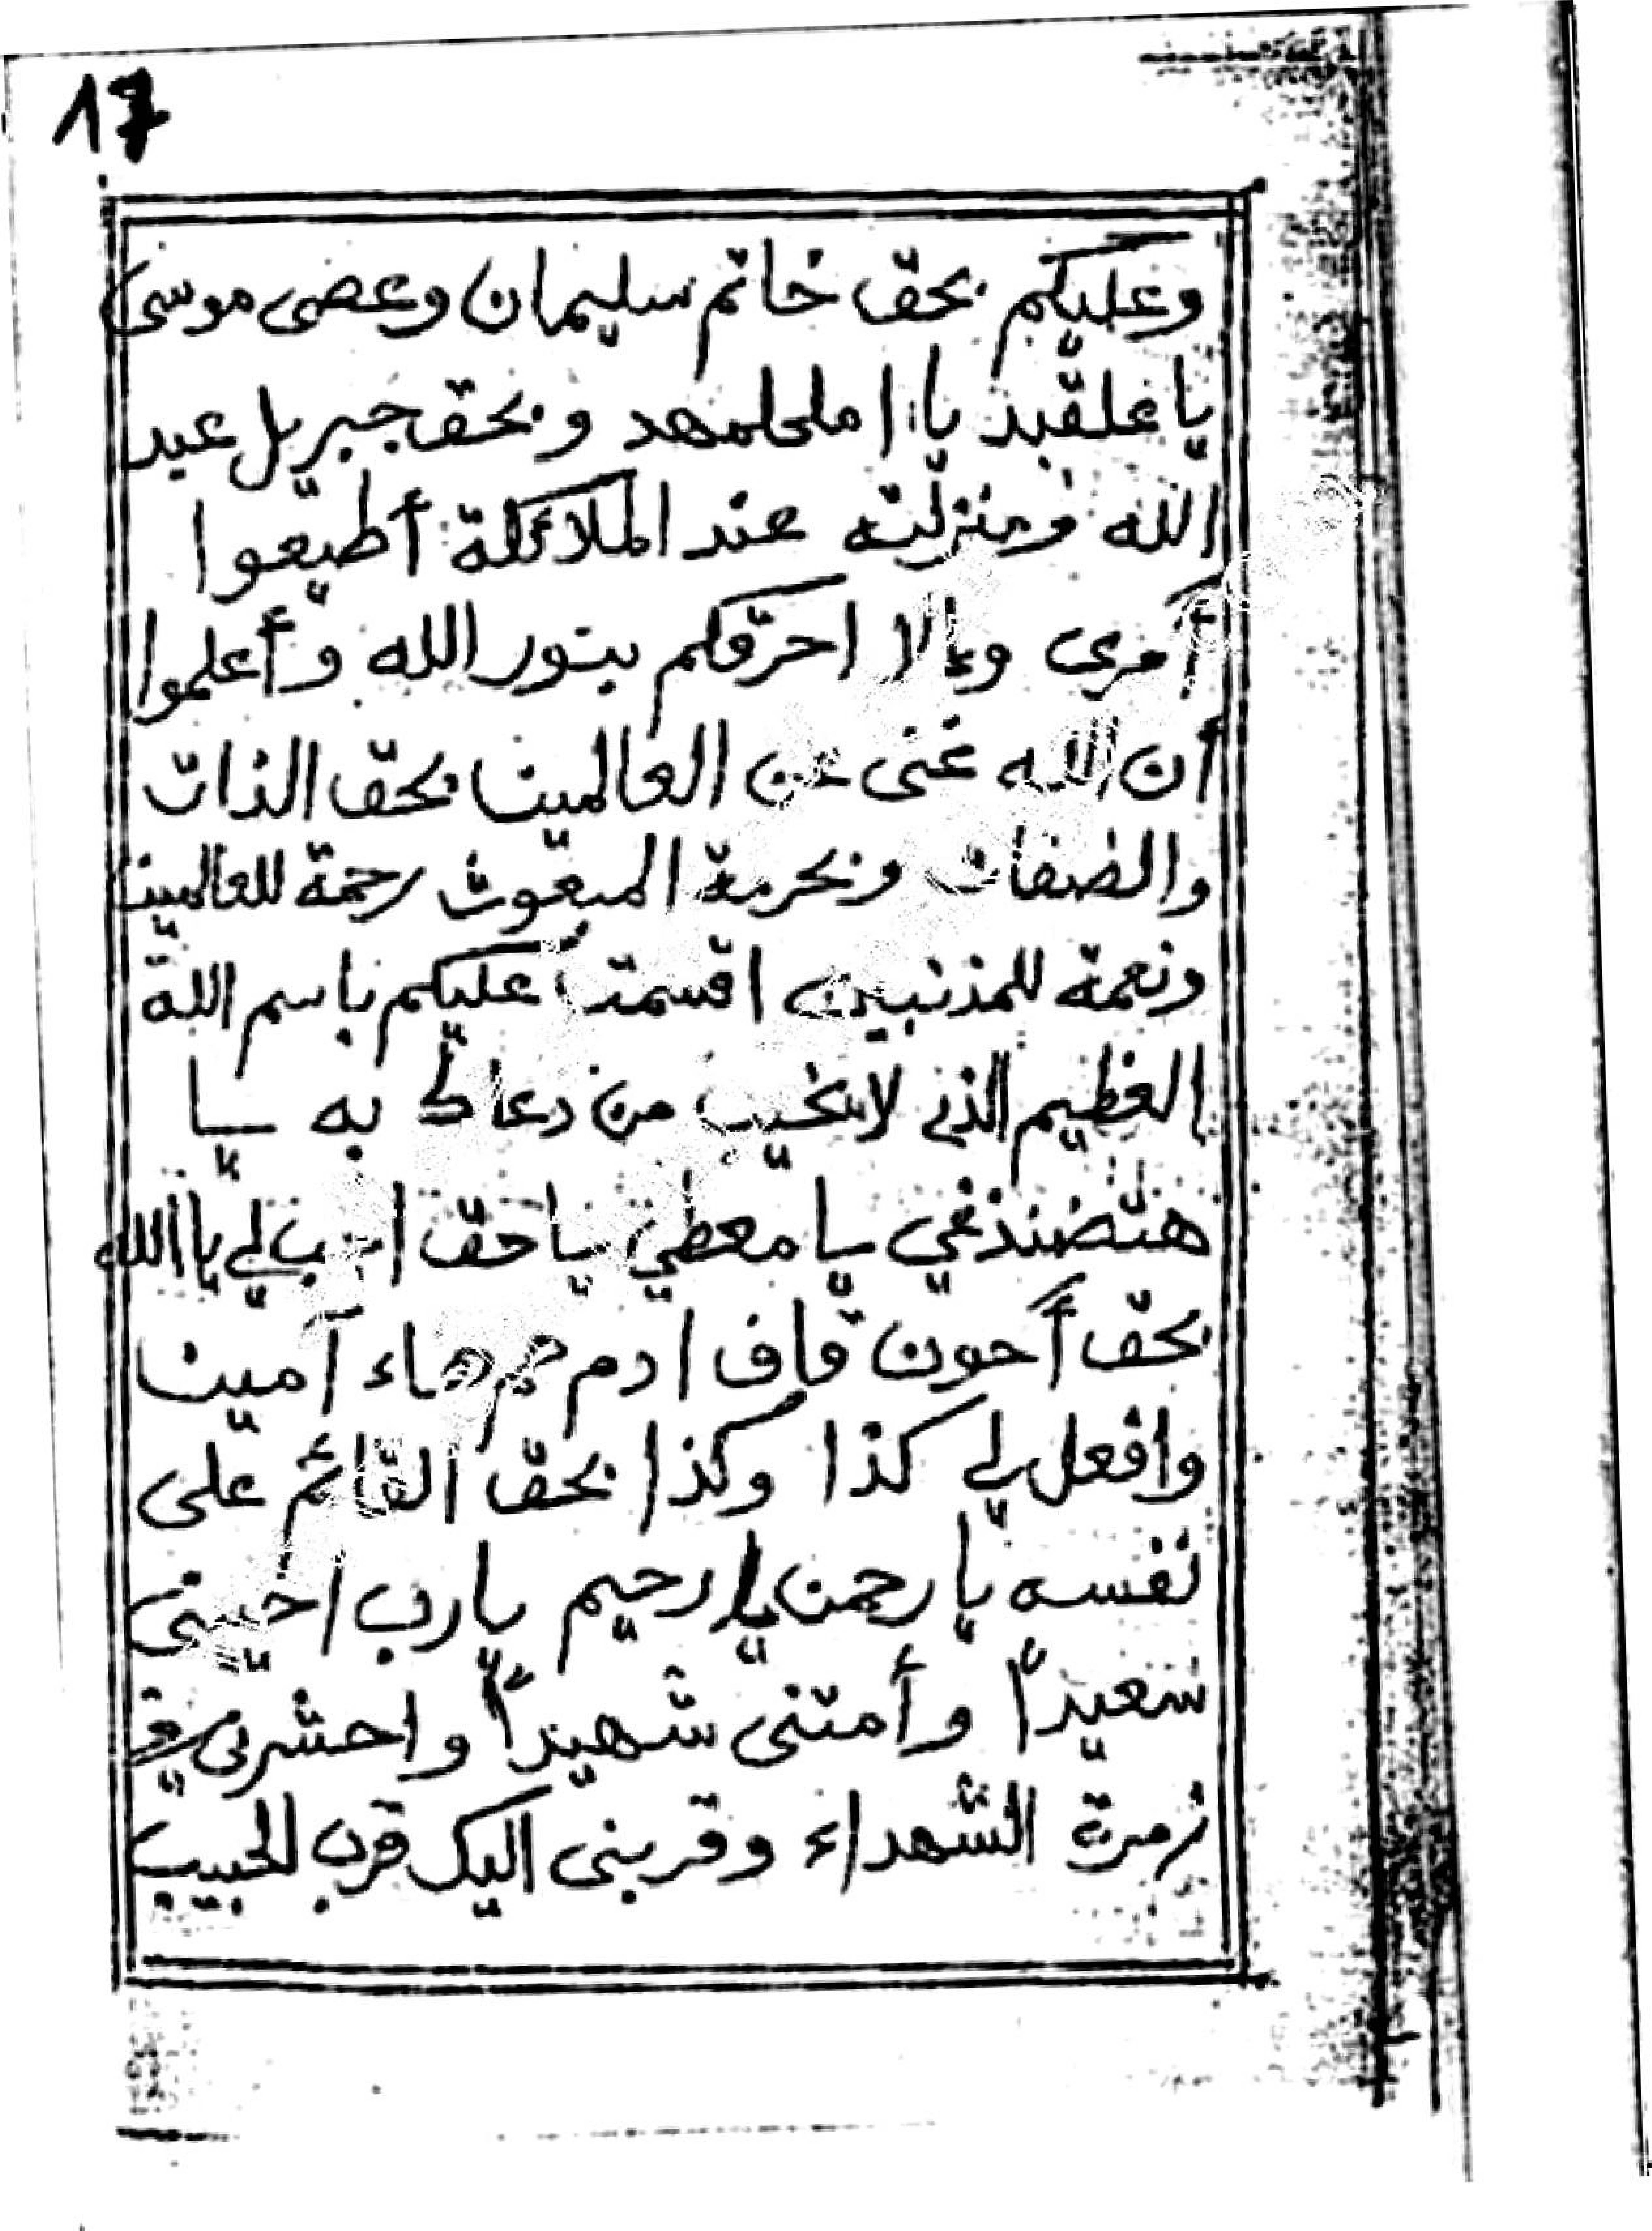 17
وعليكم بحق خاتم سليمان وعصى موسى
يا غلقبذ يا املحلمهد وبحق جبريل عبد
الله ومنزلته عند الملائكة أطيعوا
أمرى وإلا احرقكم بنور الله وأعلموا
أن الله غنى عن العالمين بحق الذات
والصفات وبحرمة المبعوث رحمة للعالمين
ونعمة للمذنبين اقسمت عليكم باسم الله
العظيم الذي لا يخيب من دعاك به يا
يا معطي يا حق لي يا الله
بحق أحون قاف ادم حم هاء آمين
وافعل لي كذا وكذا بحق القائم على
نفسه يا رحمن يا رحيم يا رب احيينى
سعيداً وأمتنى شهيداً واحشرنى في
زمرة الشهداء وقربنى اليك قرب الحبيب